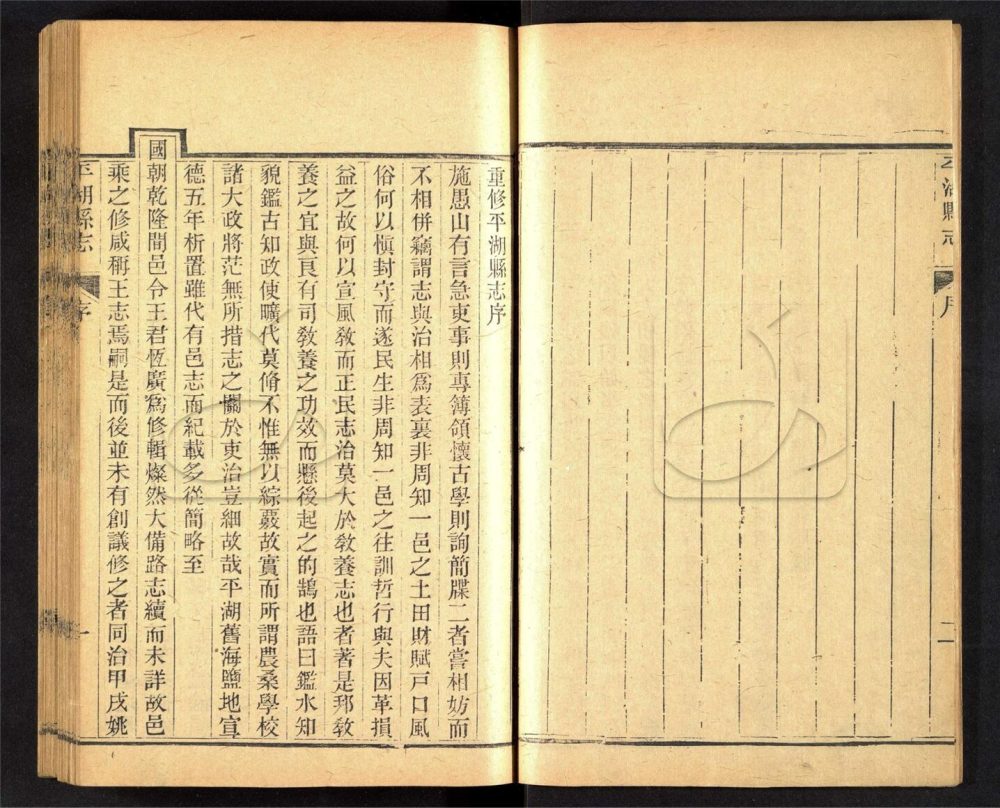 平湖縣志
序
二
重修平湖縣志序
施愚山有言急吏事則專簿領懷古學則詢簡牒二者嘗相妨而
不相併竊謂志與治相爲表裏非周知一邑之土田財賦戸口風
俗何以愼封守而遂民生非周知一邑之往訓哲行與夫因革損
益之故何以宣風敎而正民志治莫大於敎養志也者著是邦敎
養之宜與良有司敎養之功效而懸後起之的鵠也語曰鑑水知
貌鑑古知政使曠代莫脩不惟無以綜覈故實而所謂農桑學校
諸大政將茫無所措志之關於吏治豈細故哉平湖舊海鹽地宣
德五年析置雖代有邑志而紀載多從簡略至
國朝乾隆間邑令王君恆廣爲修輯燦然大備路志續而未詳故邑
乘之修咸稱王志焉嗣是而後並未有創議修之者同治甲戌姚
平湖縣志
序
一